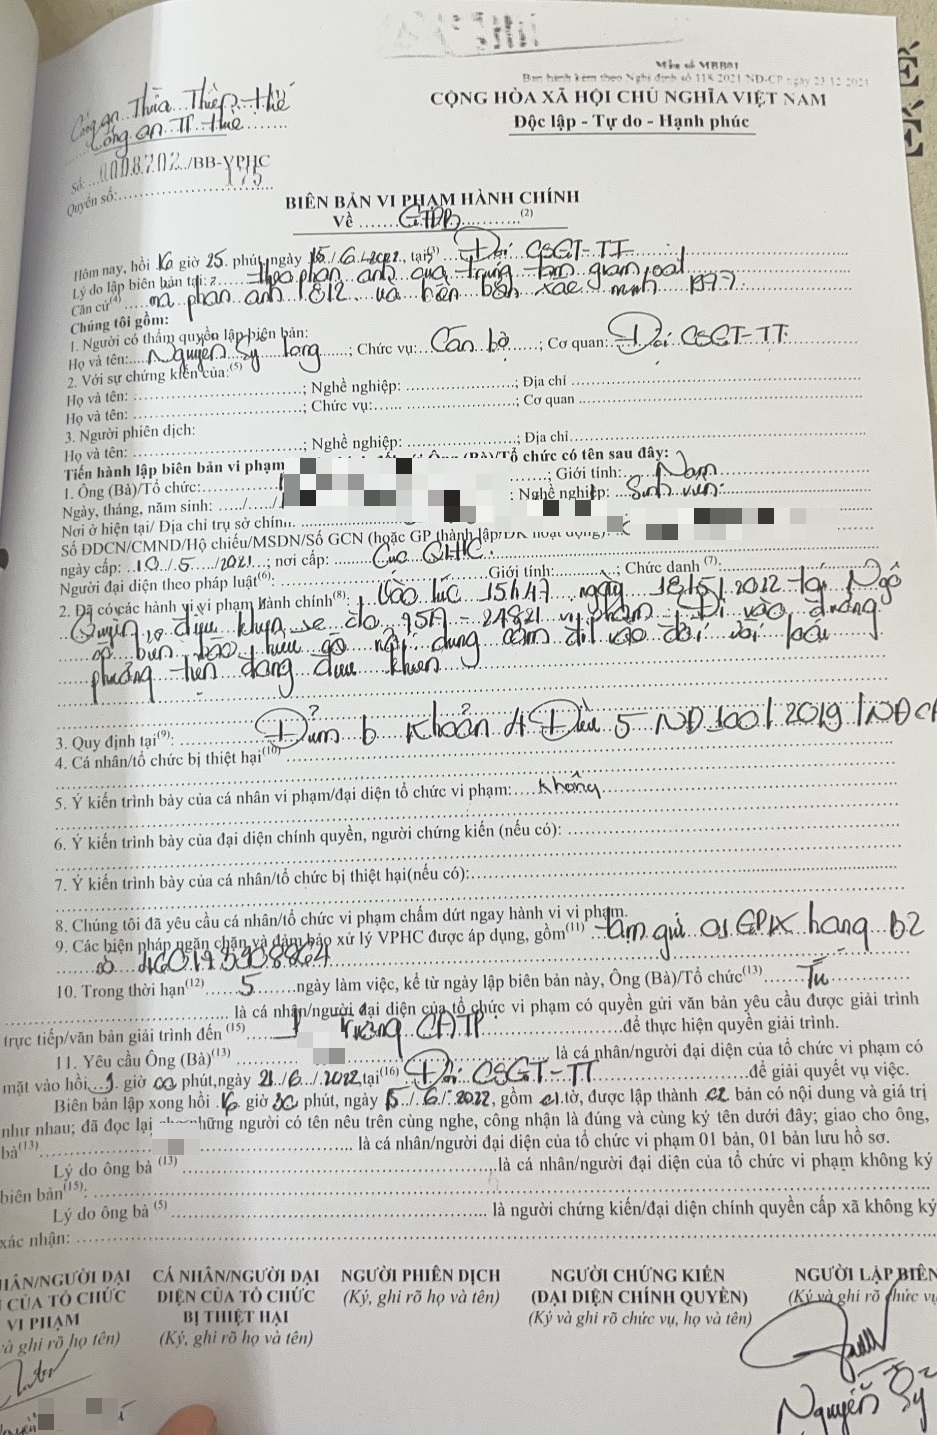 Mẫu số MBB01
Ban hành kèm theo Nghị định số 118/2021/NĐ-CP ngày 23-12-2021
Công an Thừa Thiên Huế
Công an TP Huế
CỘNG HÒA XÃ HỘI CHỦ NGHĨA VIỆT NAM
Độc lập - Tự do - Hạnh phúc
Số: 0008702/BB-VPHC
Quyển số: 175
BIÊN BẢN VI PHẠM HÀNH CHÍNH
Về GTĐB (2)
Hôm nay, hồi 16 giờ 25 phút, ngày 15/6/2022, tại(3) Đội CSGT-TT
Lý do lập biên bản tại: theo phản ánh qua trung tâm giám
Căn cứ(4) mã phản ánh 1812 và biên bản xác minh 1977
Chúng tôi gồm:
1. Người có thẩm quyền lập biên bản:
Họ và tên: Nguyễn Sỹ; Chức vụ: Cán bộ; Cơ quan: Đội CSGT-TT
2. Với sự chứng kiến của:(5)
Họ và tên: ; Nghề nghiệp: ; Địa chỉ
Họ và tên: ; Chức vụ: ; Cơ quan
3. Người phiên dịch:
Họ và tên: ; Nghề nghiệp: ; Địa chỉ
Tiến hành lập biên bản vi phạm (Bà)/Tổ chức có tên sau đây:
1. Ông (Bà)/Tổ chức: ; Giới tính: Nam
Ngày, tháng, năm sinh: ..../..../ : Nghề nghiệp: Sinh viên
Nơi ở hiện tại/ Địa chỉ trụ sở chính:
Số ĐDCN/CMND/Hộ chiếu/MSDN/Số GCN (hoặc GP thành lập/ĐK hoạt động):
ngày cấp: 10/5/2021; nơi cấp: Cục QLHC
Người đại diện theo pháp luật(6): Giới tính: ; Chức danh (7):
2. Đã có các hành vi vi phạm hành chính(8): Vào lúc 15h47 ngày 18/5/2022 tại Ngô
Quyền, điều khiển xe ôtô 95A - 24821 vi phạm: Đi vào đường
có biển báo hiệu có nội dung cấm đi vào đối với loại
phương tiện đang điều khiển
3. Quy định tại(9): Điểm b Khoản 4 Điều 5 NĐ 100/2019/NĐCP
4. Cá nhân/tổ chức bị thiệt hại(10)
5. Ý kiến trình bày của cá nhân vi phạm/đại diện tổ chức vi phạm: Không
6. Ý kiến trình bày của đại diện chính quyền, người chứng kiến (nếu có):
7. Ý kiến trình bày của cá nhân/tổ chức bị thiệt hại(nếu có):
8. Chúng tôi đã yêu cầu cá nhân/tổ chức vi phạm chấm dứt ngay hành vi vi phạm.
9. Các biện pháp ngăn chặn và đảm bảo xử lý VPHC được áp dụng, gồm(11) tạm giữ 01 GPLX hạng B2
số 460193308864
10. Trong thời hạn(12) 5 ngày làm việc, kể từ ngày lập biên bản này, Ông (Bà)/Tổ chức(13)
là cá nhân/người đại diện của tổ chức vi phạm có quyền gửi văn bản yêu cầu được giải trình
trực tiếp/văn bản giải trình đến (15) Trưởng CATP để thực hiện quyền giải trình.
11. Yêu cầu Ông (Bà)(13) là cá nhân/người đại diện của tổ chức vi phạm có
mặt vào hồi 9 giờ 00 phút, ngày 21/6/2022 tại(16) Đội CSGT-TT để giải quyết vụ việc.
Biên bản lập xong hồi 16 giờ 30 phút, ngày 15/6/2022, gồm 01 tờ, được lập thành 02 bản có nội dung và giá trị
như nhau; đã đọc lại những người có tên nêu trên cùng nghe, công nhận là đúng và cùng ký tên dưới đây; giao cho ông,
bà(13) là cá nhân/người đại diện của tổ chức vi phạm 01 bản, 01 bản lưu hồ sơ.
Lý do ông bà (13) là cá nhân/người đại diện của tổ chức vi phạm không ký
biên bản(15):
Lý do ông bà (5) là người chứng kiến/đại diện chính quyền cấp xã không ký
xác nhận:
NHÂN/NGƯỜI ĐẠI
CỦA TỔ CHỨC
VI PHẠM
và ghi rõ họ tên)
CÁ NHÂN/NGƯỜI ĐẠI
DIỆN CỦA TỔ CHỨC
BỊ THIỆT HẠI
(Ký, ghi rõ họ và tên)
NGƯỜI PHIÊN DỊCH
(Ký, ghi rõ họ và tên)
NGƯỜI CHỨNG KIẾN
(ĐẠI DIỆN CHÍNH QUYỀN)
(Ký và ghi rõ chức vụ, họ và tên)
NGƯỜI LẬP BIÊN
(Ký và ghi rõ chức vụ
Nguyễn Sỹ